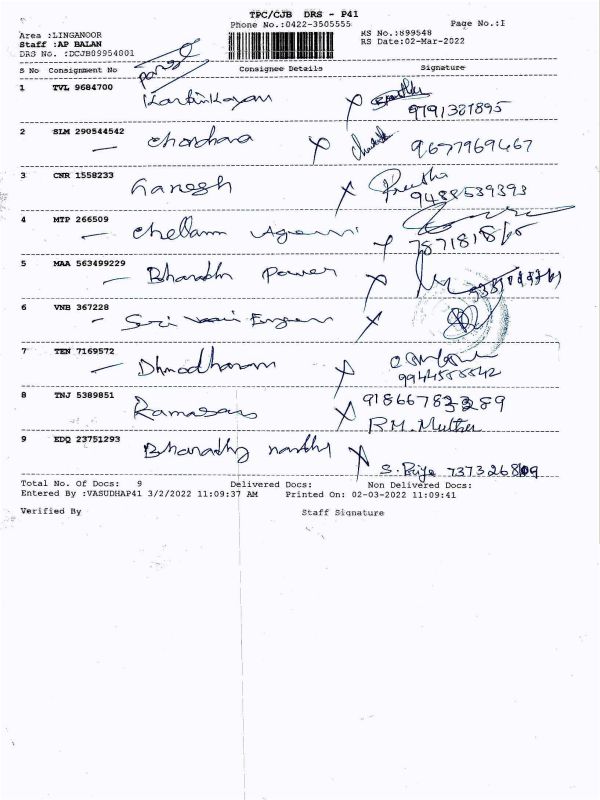 TPC/CJB DRS - P41
Phone No.:0422-3505555
Page No.:1
Area :LINGANOOR
RS No.:899548
Staff :AP BALAN
RS Date:02-Mar-2022
DRS No. :DCJB09954001
S No Consignment No Consignee Details Signature
1 TVL 9684700 Karthikayan
9791381895
2 SLM 290544542 — Chandhara X 9677969467
3 CNR 1558233 Ganesh X Preetha
9488539393
4 MTP 266509 — Chellam Agenci
5 MAA 563499229 — Bharath Power X
6 VNB 367228 — Sri X
7 TEN 7169572 — X
8 TNJ 5389851 X 918667833289
R.M. Muthu
9 EDQ 23751293 X
S. Priya
Total No. Of Docs: 9 Delivered Docs: Non Delivered Docs:
Entered By :VASUDHAP41 3/2/2022 11:09:37 AM Printed On: 02-03-2022 11:09:41
Verified By Staff Signature